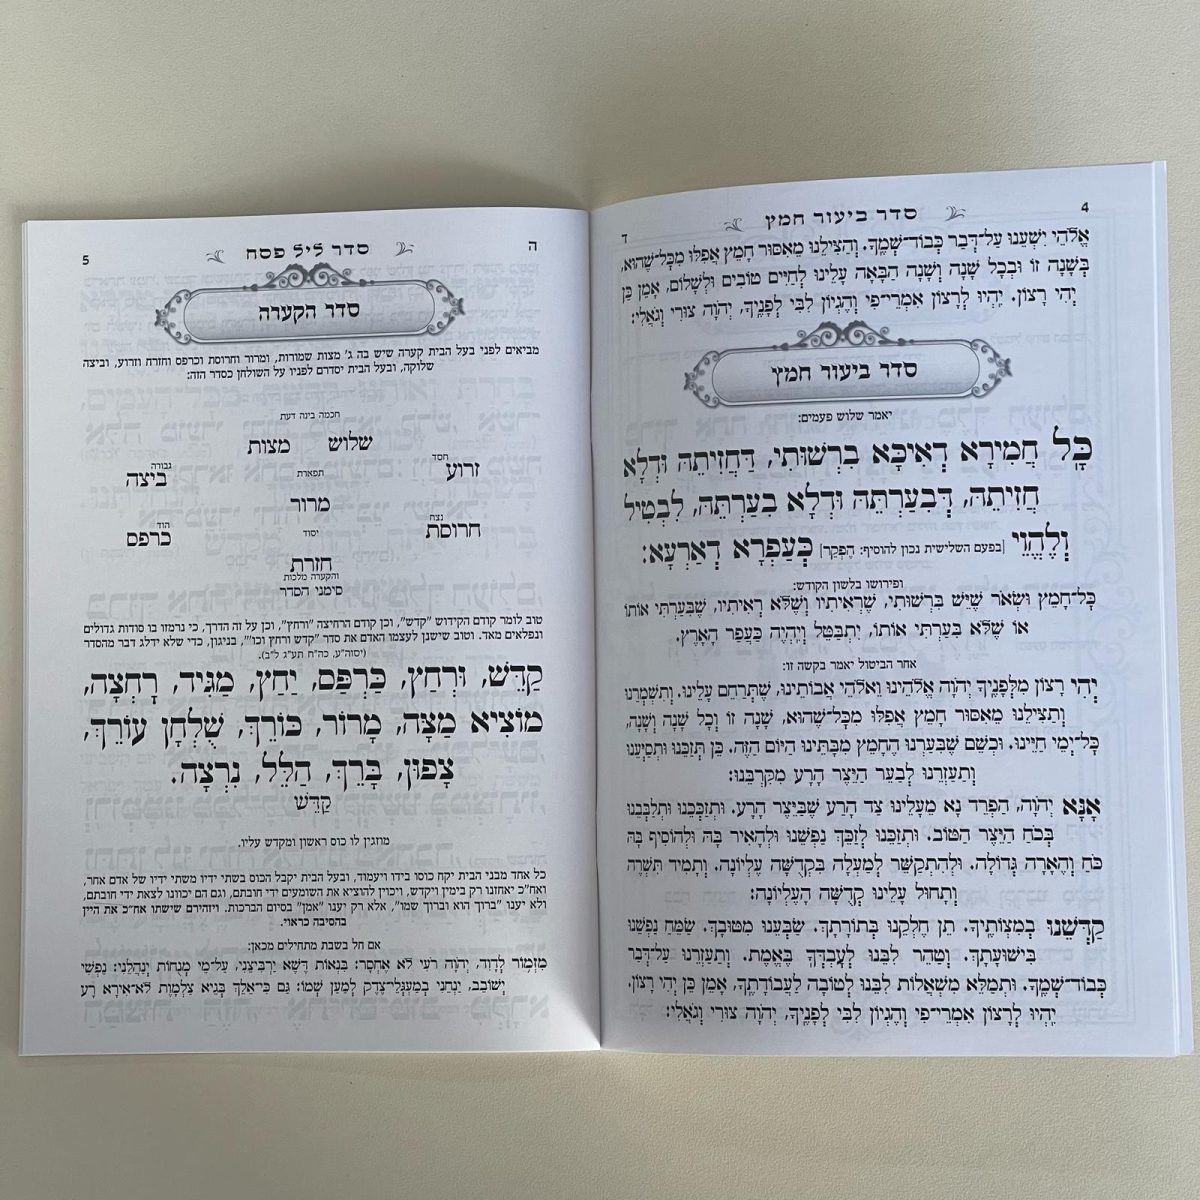 4
סדר ביעור חמץ
ד
אֱלֹהֵי יִשְׁעֵנוּ עַל־דְּבַר כְּבוֹד־שְׁמֶךָ. וְהַצִּילֵנוּ מֵאִסּוּר חָמֵץ אֲפִלּוּ מִכָּל־שֶׁהוּא,
בְּשָׁנָה זוֹ וּבְכָל שָׁנָה וְשָׁנָה הַבָּאָה עָלֵינוּ לְחַיִּים טוֹבִים וּלְשָׁלוֹם, אָמֵן כֵּן
יְהִי רָצוֹן. יִהְיוּ לְרָצוֹן אִמְרֵי־פִי וְהֶגְיוֹן לִבִּי לְפָנֶיךָ, יְהֹוָה צוּרִי וְגֹאֲלִי:
סדר ביעור חמץ
יאמר שלוש פעמים:
כָּל חֲמִירָא דְּאִיכָּא בִּרְשׁוּתִי, דַּחֲזִיתֵהּ וּדְלָא
חֲזִיתֵהּ, דְּבִעַרְתֵּהּ וּדְלָא בִעַרְתֵּהּ, לִבְטִיל
וְלֶהֱוֵי [בפעם השלישית נכון להוסיף: הֶפְקֵר] כְּעַפְרָא דְאַרְעָא:
ופירושו בלשון הקודש:
כָּל־חָמֵץ וּשְׂאֹר שֶׁיֵּשׁ בִּרְשׁוּתִי, שֶׁרְאִיתִיו וְשֶׁלֹּא רְאִיתִיו, שֶׁבִּעַרְתִּי אוֹתוֹ
אוֹ שֶׁלֹּא בִּעַרְתִּי אוֹתוֹ, יִתְבַּטֵּל וְיִהְיֶה כַּעֲפַר הָאָרֶץ.
אחר הביטול יאמר בקשה זו:
יְהִי רָצוֹן מִלְּפָנֶיךָ יְהֹוָה אֱלֹהֵינוּ וֵאלֹהֵי אֲבוֹתֵינוּ, שֶׁתְּרַחֵם עָלֵינוּ. וְתִשְׁמְרֵנוּ
וְתַצִּילֵנוּ מֵאִסּוּר חָמֵץ אֲפִלּוּ מִכָּל־שֶׁהוּא, שָׁנָה זוֹ וְכָל שָׁנָה וְשָׁנָה,
כָּל־יְמֵי חַיֵּינוּ. וּכְשֵׁם שֶׁבִּעַרְנוּ הֶחָמֵץ מִבָּתֵּינוּ הַיּוֹם הַזֶּה. כֵּן תְּזַכֵּנוּ וּתְסַיְּעֵנוּ
וְתַעְזְרֵנוּ לְבַעֵר הַיֵּצֶר הָרָע מִקִּרְבֵּנוּ:
אָנָּא יְהֹוָה, הַפְרֵד נָא מֵעָלֵינוּ צַד הָרַע שֶׁבַּיֵּצֶר הָרַע. וּתְזַכְּכֵנוּ וּתְלַבְּבֵנוּ
בְּכֹחַ הַיֵּצֶר הַטּוֹב. וּתְזַכֵּנוּ לְזַכֵּךְ נַפְשֵׁנוּ וּלְהָאִיר בָּהּ וּלְהוֹסִיף בָּהּ
כֹּחַ וְהֶאָרָה גְּדוֹלָה. וּלְהִתְקַשֵּׁר לְמַעְלָה בִּקְדֻשָּׁה עֶלְיוֹנָה. וְתָמִיד תִּשְׁרֶה
וְתָחוּל עָלֵינוּ קְדֻשָּׁה הָעֶלְיוֹנָה:
קַדְּשֵׁנוּ בְּמִצְוֹתֶיךָ. תֵּן חֶלְקֵנוּ בְּתוֹרָתָךְ. שַׂבְּעֵנוּ מִטּוּבָךְ. שַׂמַּח נַפְשֵׁנוּ
בִּישׁוּעָתָךְ. וְטַהֵר לִבֵּנוּ לְעָבְדְּךָ בֶּאֱמֶת. וְתַעְזְרֵנוּ עַל־דְּבַר
כְּבוֹד־שְׁמֶךָ. וּתְמַלֵּא מִשְׁאֲלוֹת לִבֵּנוּ לְטוֹבָה לַעֲבוֹדָתֶךָ, אָמֵן כֵּן יְהִי רָצוֹן.
יִהְיוּ לְרָצוֹן אִמְרֵי־פִי וְהֶגְיוֹן לִבִּי לְפָנֶיךָ, יְהֹוָה צוּרִי וְגֹאֲלִי:
ה
סדר ליל פסח
5
סדר הקערה
מביאים לפני בעל הבית קערה שיש בה ג' מצות שמורות, ומרור וחרוסת וכרפס וחזרת וזרוע, וביצה
שלוקה, ובעל הבית יסדרם לפניו על השולחן כסדר הזה:
חכמה בינה דעת
שלוש מצות
חסד
זרוע
גבורה
ביצה
תפארת
מרור
נצח
חרוסת
הוד
כרפס
יסוד
חזרת
והקערה מלכות
סימני הסדר
טוב לומר קודם הקידוש "קדש", וכן קודם הרחיצה "ורחץ", וכן על זה הדרך, כי נרמזו בו סודות גדולים
ונפלאים מאד. וטוב שישנן לעצמו האדם את סדר "קדש ורחץ וכו'", בניגון, כדי שלא ידלג דבר מהסדר
(יסוה"ע, כה"ח תע"ג ל"ב).
קַדֵּשׁ, וּרְחַץ, כַּרְפַּס, יַחַץ, מַגִּיד, רָחְצָה,
מוֹצִיא מַצָּה, מָרוֹר, כּוֹרֵךְ, שֻׁלְחָן עוֹרֵךְ,
צָפוּן, בָּרֵךְ, הַלֵּל, נִרְצָה.
קַדֵּשׁ
מוזגין לו כוס ראשון ומקדש עליו.
כל אחד מבני הבית יקח כוסו בידו ויעמוד, ובעל הבית יקבל הכוס בשתי ידיו משתי ידיו של אדם אחר,
ואח"כ יאחזנו רק בימין ויקדש, ויכוין להוציא את השומעים ידי חובתם, וגם הם יכוונו לצאת ידי חובתם,
ולא יענו "ברוך הוא וברוך שמו", אלא רק יענו "אמן" בסיום הברכות. ויזהירם שישתו אח"כ את היין
בהסיבה כראוי.
אם חל בשבת מתחילים מכאן:
מִזְמוֹר לְדָוִד, יְהֹוָה רֹעִי לֹא אֶחְסָר: בִּנְאוֹת דֶּשֶׁא יַרְבִּיצֵנִי, עַל־מֵי מְנֻחוֹת יְנַהֲלֵנִי: נַפְשִׁי
יְשׁוֹבֵב, יַנְחֵנִי בְמַעְגְּלֵי־צֶדֶק לְמַעַן שְׁמוֹ: גַּם כִּי־אֵלֵךְ בְּגֵיא צַלְמָוֶת לֹא־אִירָא רָע